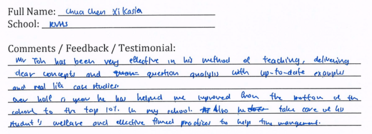 Full Name: Chua Chen Xi Kasia
School: RVHS
Comments / Feedback / Testimonial:
Mr Toh has been very effective in his method of teaching, delivering
clear concepts and question analysis with up-to-date examples
and real life case studies.
Over half a year he has helped me improved from the bottom of the
cohort to the top 10% in my school. Also he take care of his
student's welfare and effective practices to help time management.